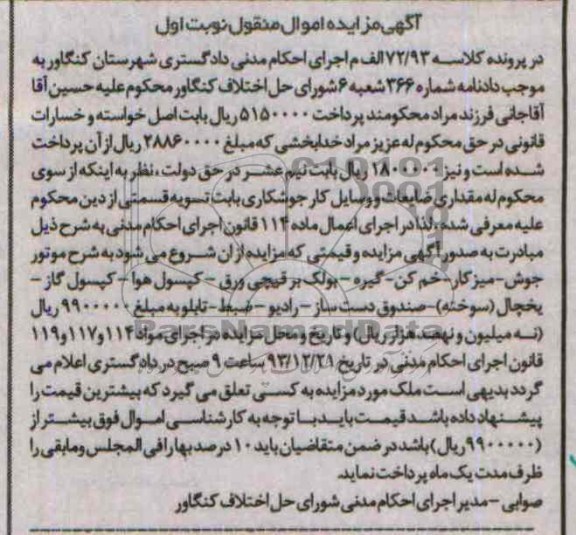 آگهی مزایده اموال منقول نوبت اول
در پرونده کلاسه ۷۲/۹۳ الف م اجرای احکام مدنی دادگستری شهرستان کنگاور به
موجب دادنامه شماره ۳۶۶ شعبه ۶ شورای حل اختلاف کنگاور محکوم علیه حسین آقا
آقاجانی فرزند مراد محکومند پرداخت ۵۱۵۰۰۰۰ ریال بابت اصل خواسته و خسارات
قانونی در حق محکوم له عزیز مراد خدابخشی که مبلغ ۲۸۸۶۰۰۰۰ ریال از آن پرداخت
شده است و نیز ۱۸۰۰۰۰۰ ریال بابت نیم عشر در حق دولت، نظر به اینکه از سوی
محکوم له مقداری ضایعات و وسایل کار جوشکاری بابت تسویه قسمتی از دین محکوم
علیه معرفی شده، لذا در اجرای اعمال ماده ۱۱۴ قانون اجرای احکام مدنی به شرح ذیل
مبادرت به صدور آگهی مزایده و قیمتی که مزایده از ان شروع می شود به شرح موتور
جوش - میز کار - خم کن - گیره - بولک بر قیچی ورق - کپسول هوا - کپسول گاز -
یخچال (سوخته) - صندوق دست ساز - رادیو - ضبط - تابلو به مبلغ ۹۹۰۰۰۰۰ ریال
(نه میلیون و نهصد هزار ریال) و تاریخ و محل مزایده در اجرای مواد ۱۱۴ و ۱۱۷ و ۱۱۹
قانون اجرای احکام مدنی در تاریخ ۹۳/۱۲/۲۱ ساعت ۹ صبح در دادگستری اعلام می
گردد بدیهی است ملک مورد مزایده به کسی تعلق می گیرد که بیشترین قیمت را
پیشنهاد داده باشد قیمت باید با توجه به کارشناسی اموال فوق بیشتر از
(۹۹۰۰۰۰۰ ریال) باشد در ضمن متقاضیان باید ۱۰ درصد بها را فی المجلس و مابقی را
ظرف مدت یک ماه پرداخت نماید.
صوابی - مدیر اجرای احکام مدنی شورای حل اختلاف کنگاور
ParsNamadData